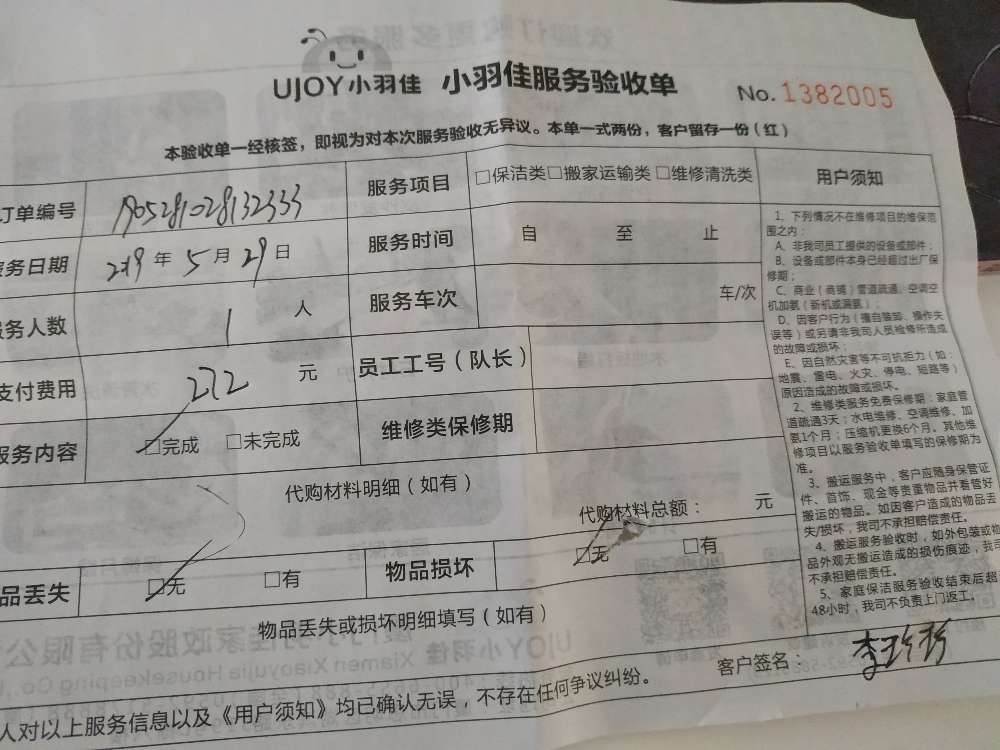 UJOY小羽佳 小羽佳服务验收单 No. 1382005
本验收单一经核签，即视为对本次服务验收无异议。本单一式两份，客户留存一份（红）
订单编号 1905281028132333 服务项目 □保洁类□搬家运输类□维修清洗类 用户须知
务日期 2019年5月29日 服务时间 自 至 止
务人数 1 人 服务车次 车/次
支付费用 272 元 员工工号（队长）
服务内容 □完成 □未完成 维修类保修期
代购材料明细（如有）
代购材料总额： 元
品丢失 □无 □有 物品损坏 □无 □有
物品丢失或损坏明细填写（如有）
1、下列情况不在维修项目的维保范
围之内：
A、非我司员工提供的设备或部件；
B、设备或部件本身已经超过出厂保
修期；
C、商业（商铺）管道疏通、空调空
机加氨（新机或漏氨）；
D、因客户行为（擅自装卸、操作失
误等）或另请非我司人员检修所造成
的故障或损坏；
E、因自然灾害等不可抗拒力（如：
地震、雷电、火灾、停电、短路等）
原因造成的故障或损坏。
2、维修类服务免费保修期：家庭管
道疏通3天；水电维修、空调维修、加
氨1个月；压缩机更换6个月。其他维
修项目以服务验收单填写的保修期为
准。
3、搬运服务中，客户应随身保管证
件、首饰、现金等贵重物品并看管好
搬运的物品。如因客户造成的物品丢
失/损坏，我司不承担赔偿责任。
4、搬运服务验收时，如外包装或物
品外观无搬运造成的损伤痕迹，我司
不承担赔偿责任。
5、家庭保洁服务验收结束后超
48小时，我司不负责上门返工。
客户签名： 李珍珍
人对以上服务信息以及《用户须知》均已确认无误，不存在任何争议纠纷。